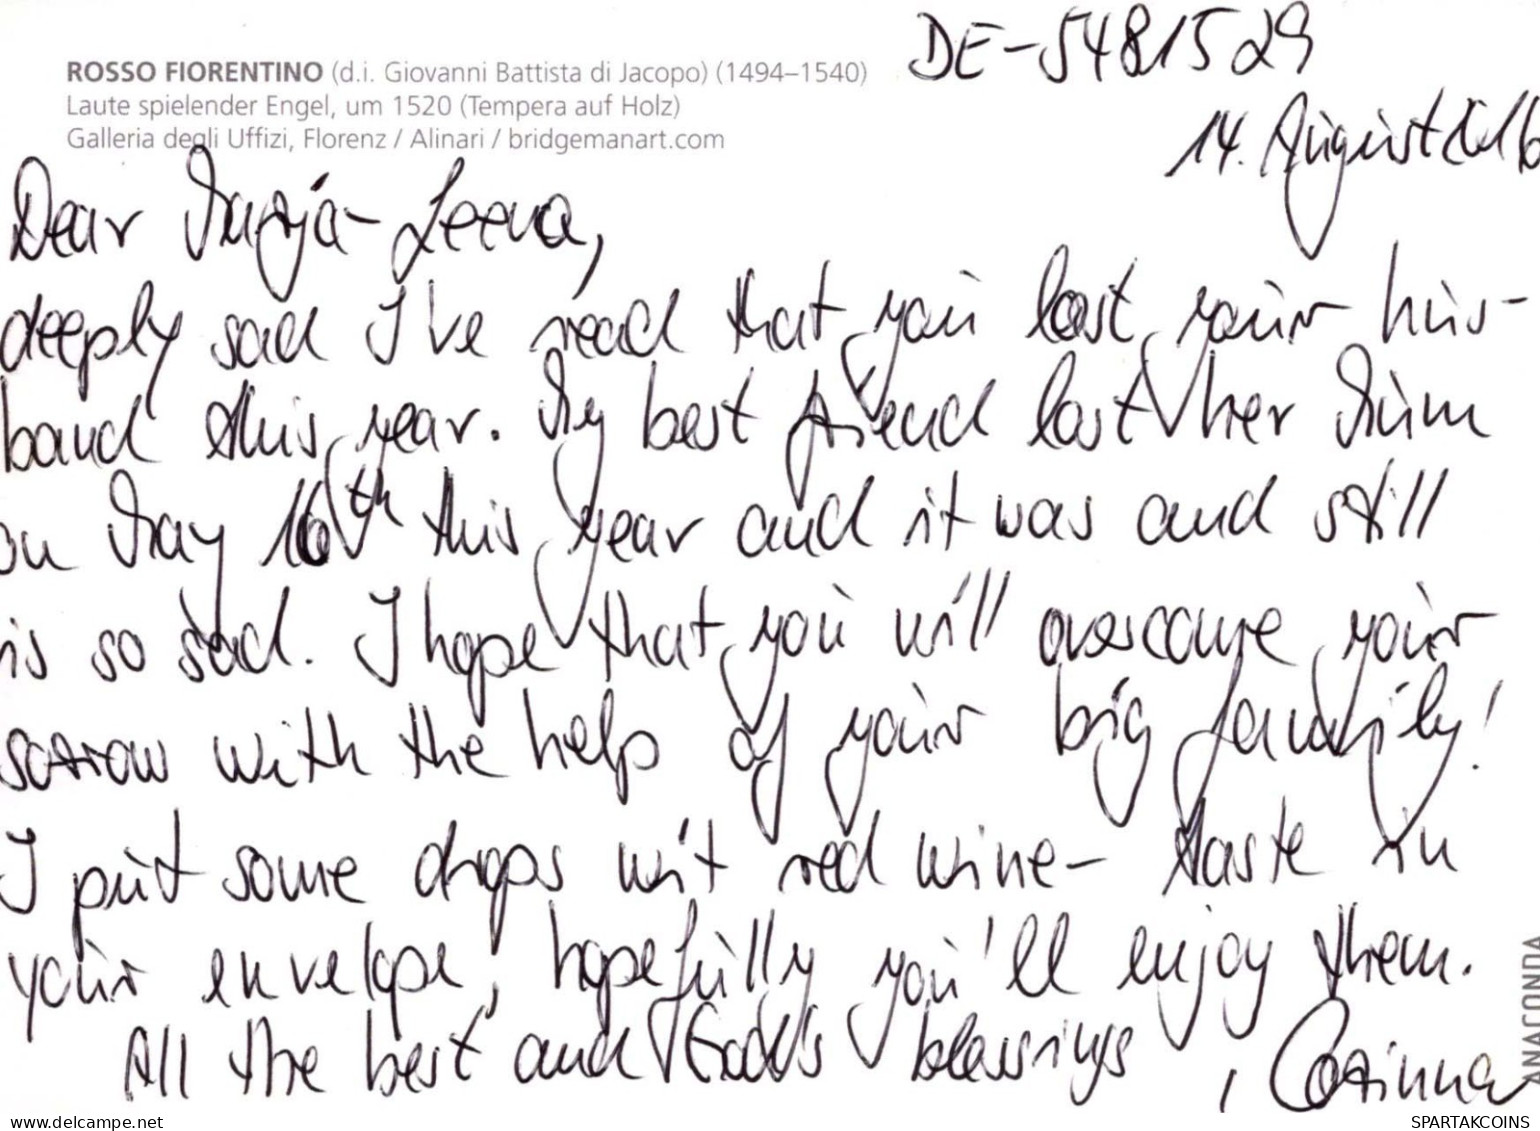 DE-5481529
ROSSO FIORENTINO (d.i. Giovanni Battista di Jacopo) (1494–1540)
Laute spielender Engel, um 1520 (Tempera auf Holz)
Galleria degli Uffizi, Florenz / Alinari / bridgemanart.com
14. August 2016
Dear Marja-Leena,
deeply sad I've read that you lost your hus-
band this year. My best friend lost her Mum
on May 16th this year and it was and still
is so sad. I hope that you will overcome your
sorrow with the help of your big family!
I put some drops wit red wine- taste in
your envelope, hopefully you'll enjoy them.
All the best and God's blessings, Corinna
ANACONDA
www.delcampe.net
SPARTAKCOINS